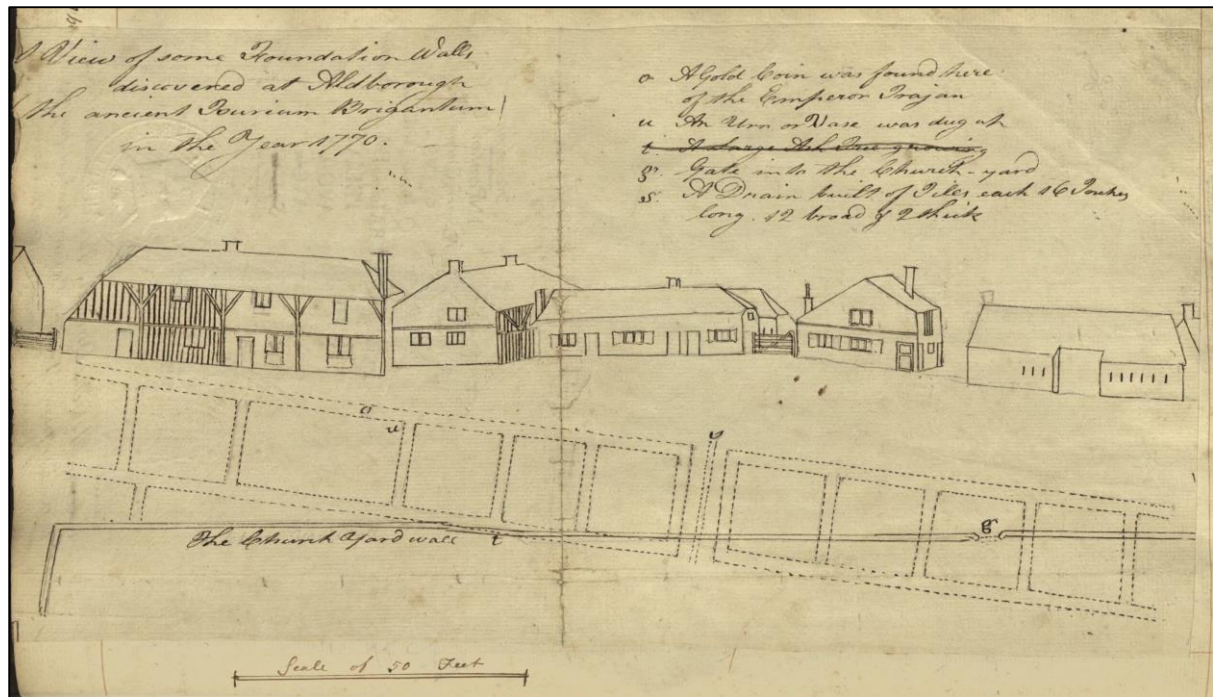 A View of some Foundation Walls
discovered at Aldborough
(the ancient Isurium Brigantum)
in the Year 1770.
o A Gold Coin was found here
of the Emperor Trajan
u An Urn or Vase was dug up
t. A Large Ash Tree growing
g. Gate into the Church-yard
s. A Drain built of Tiles each 16 Inches
long. 12 broad & 2 thick
o
u
s
g
The Church Yard wall t
Scale of 50 Feet